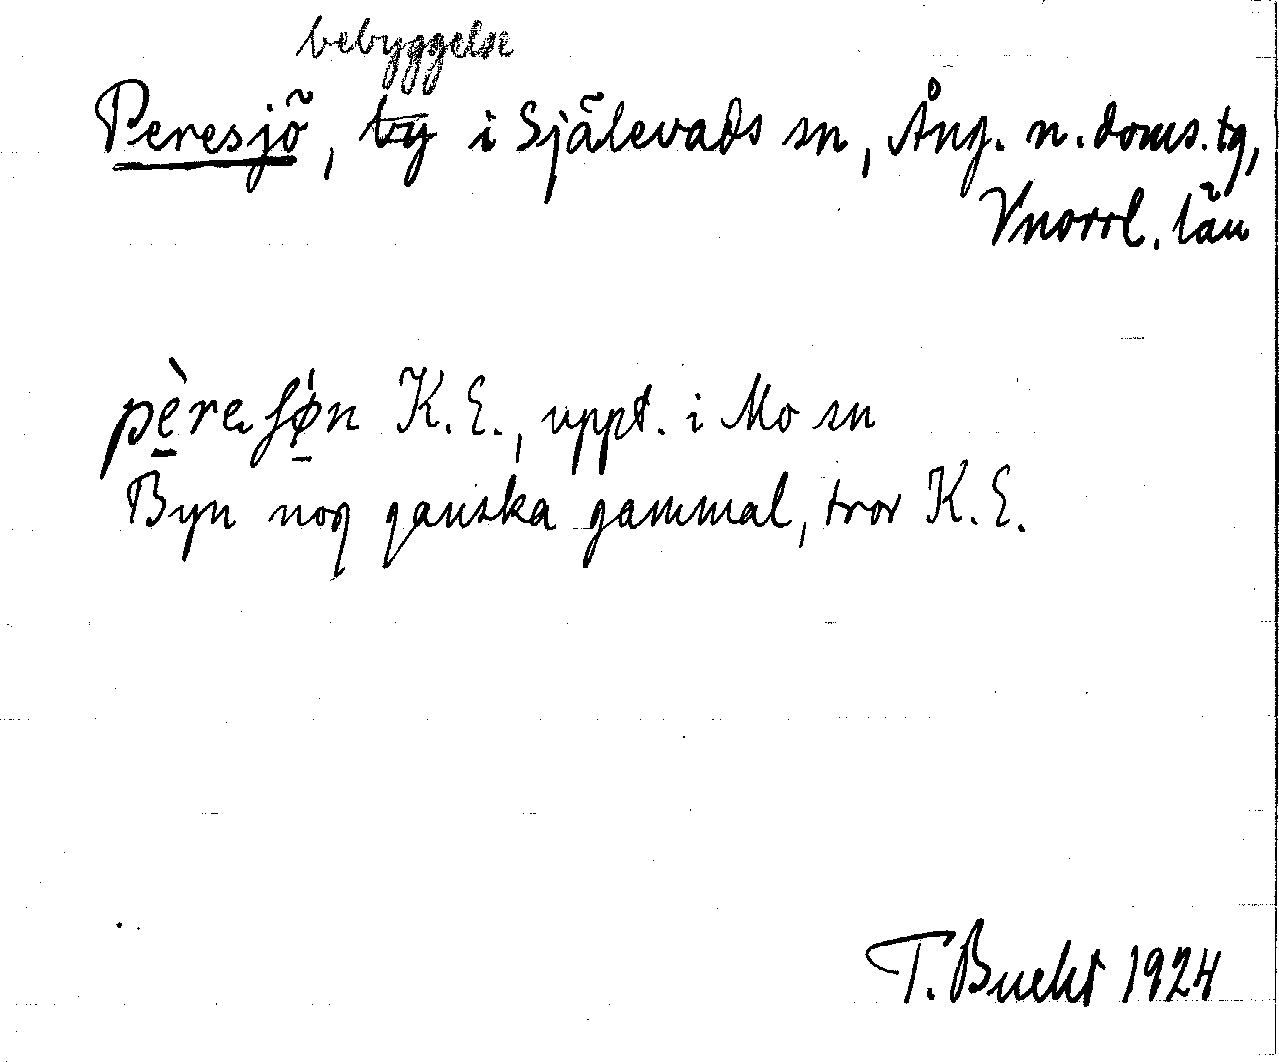 bebyggelse
Peresjö, by i Själevads sn, Ång. n. doms. tg,
Vnorrl. län
pèreʃø̀n K.E., uppt. i Mo sn
Byn nog ganska gammal, tror K.E.
T. Bucht 1924